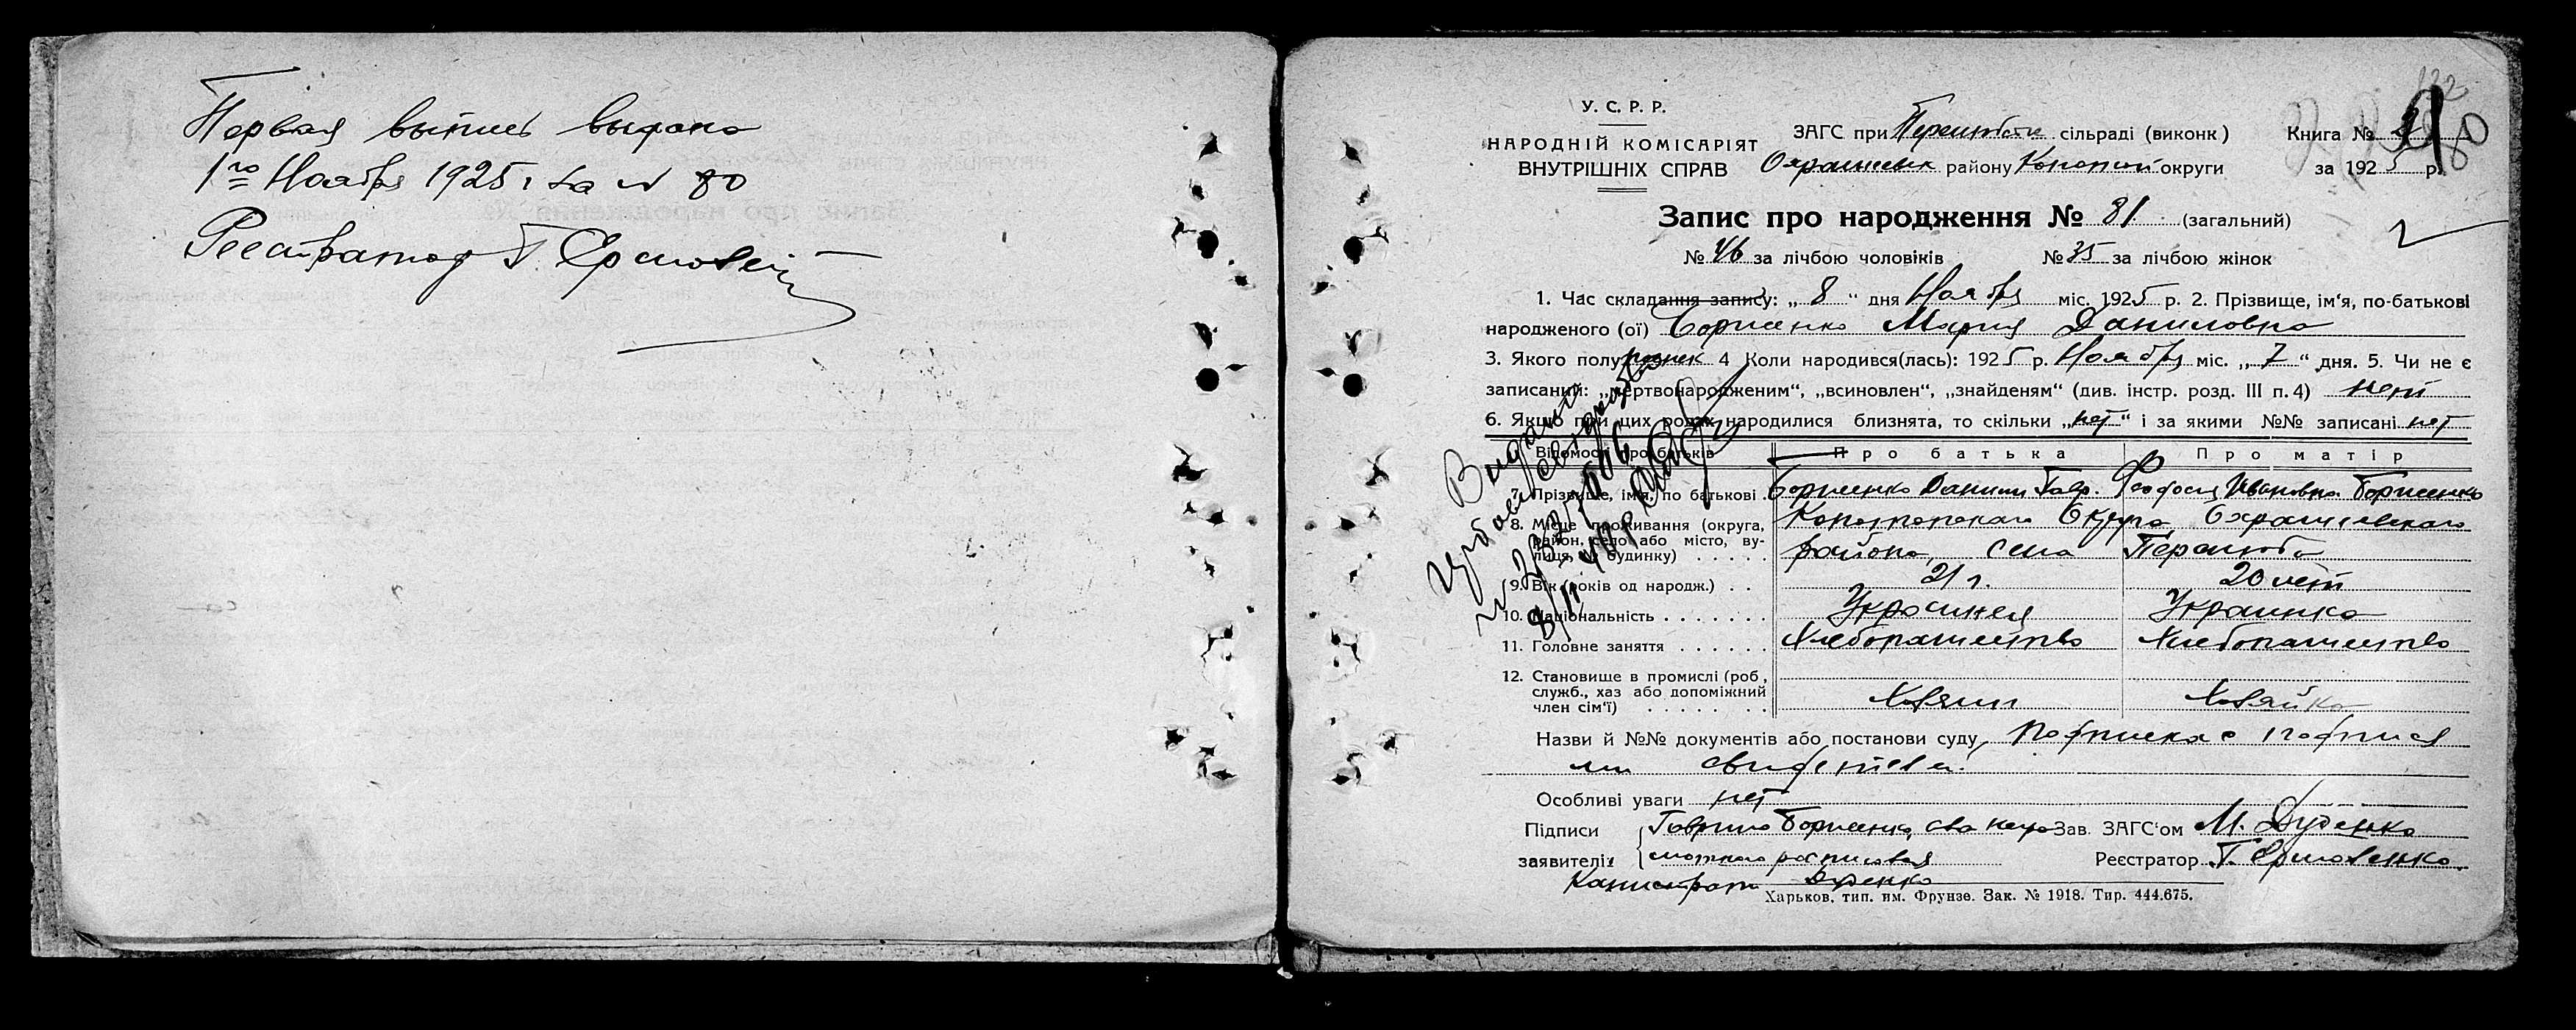 Первая выпись выдана
1го Ноября 1925 г за № 80
Реестратор Т.
У. С. Р. Р.
НАРОДНІЙ КОМІСАРІЯТ
ВНУТРІШНІХ СПРАВ
ЗАГС при Перелюбск сільраді (виконк)
району Конотоп округи
Книга №
за 1925 р.
Запис про народження № 81 (загальний)
№ 46 за лічбою чоловіків № 35 за лічбою жінок
1. Час складання запису: „ 8 “ дня Ноября міс. 1925 р. 2. Прізвище, ім‘я, по-батькові
народженого (ої) Борисенко Мария Даниловна
3. Якого полу 4 Коли народився(лась): 1925 р. Ноября міс. „ 7 “ дня. 5. Чи не є
записаний: „мертвонародженим“, „всиновлен“, „знайденям“ (див. інстр. розд. III п. 4) нет
6. Якщо при цих родах народилися близнята, то скільки „нет“ і за якими №№ записані нет
Відомості про батьків Про батька Про матір
7. Прізвище, імя, по батькові Борисенко Данили Гавр. Феодосия Ивановна Борисенко
8. Місце проживання (округа, район, село або місто, вулиця, № будинку) Конотопского Округа,
района, села Перелюба
9. Вік (років од народж.) 21 г. 20 лет
10. Національність Украинец Украинка
11. Головне заняття Хлебопашество Хлебопашество
12. Становище в промислі (роб, служб., хаз або допоміжний член сім‘ї) Хозяин Хозяйка
Назви й №№ документів або постанови суду Подписка с подпися
ми свидетелей.
Особливі уваги нет
Підписи заявителів Гаврило Борисенко, а за него
расписался
Дуденко
Зав. ЗАГС‘ом М. Дуденко
Реєстратор Т.
Харьков, тип. им. Фрунзе. Зак. № 1918. Тир. 444.675.